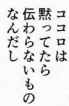 ココロは
黙ってたら
伝わらないもの
なんだし